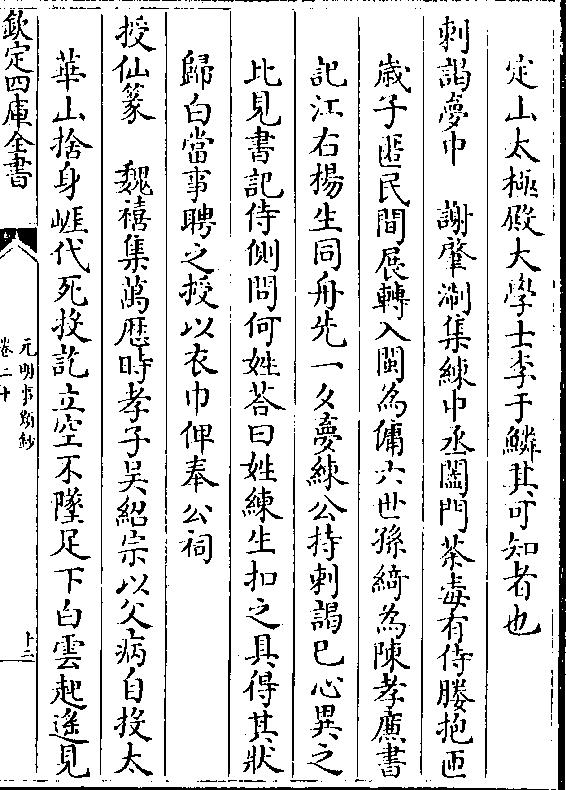 定山太極殿大學士李于鱗其可知者也
刺謁夢中　謝肇淛集練中丞闔門荼毒有侍媵抱匝
歲子匿民間展轉入閩為傭六世孫綺為陳孝廉書
記江右楊生同舟先一夕夢練公持刺謁已心異之
比見書記侍側問何姓荅曰姓練生扣之具得其狀
歸白當事聘之授以衣巾俾奉公祠
授仙篆　魏禧集萬歴時孝子吳紹宗以父病自投太
華山捨身崕代死投訖立空不墜足下白雲起遙見
欽定四庫全書
元明事類鈔
卷二十